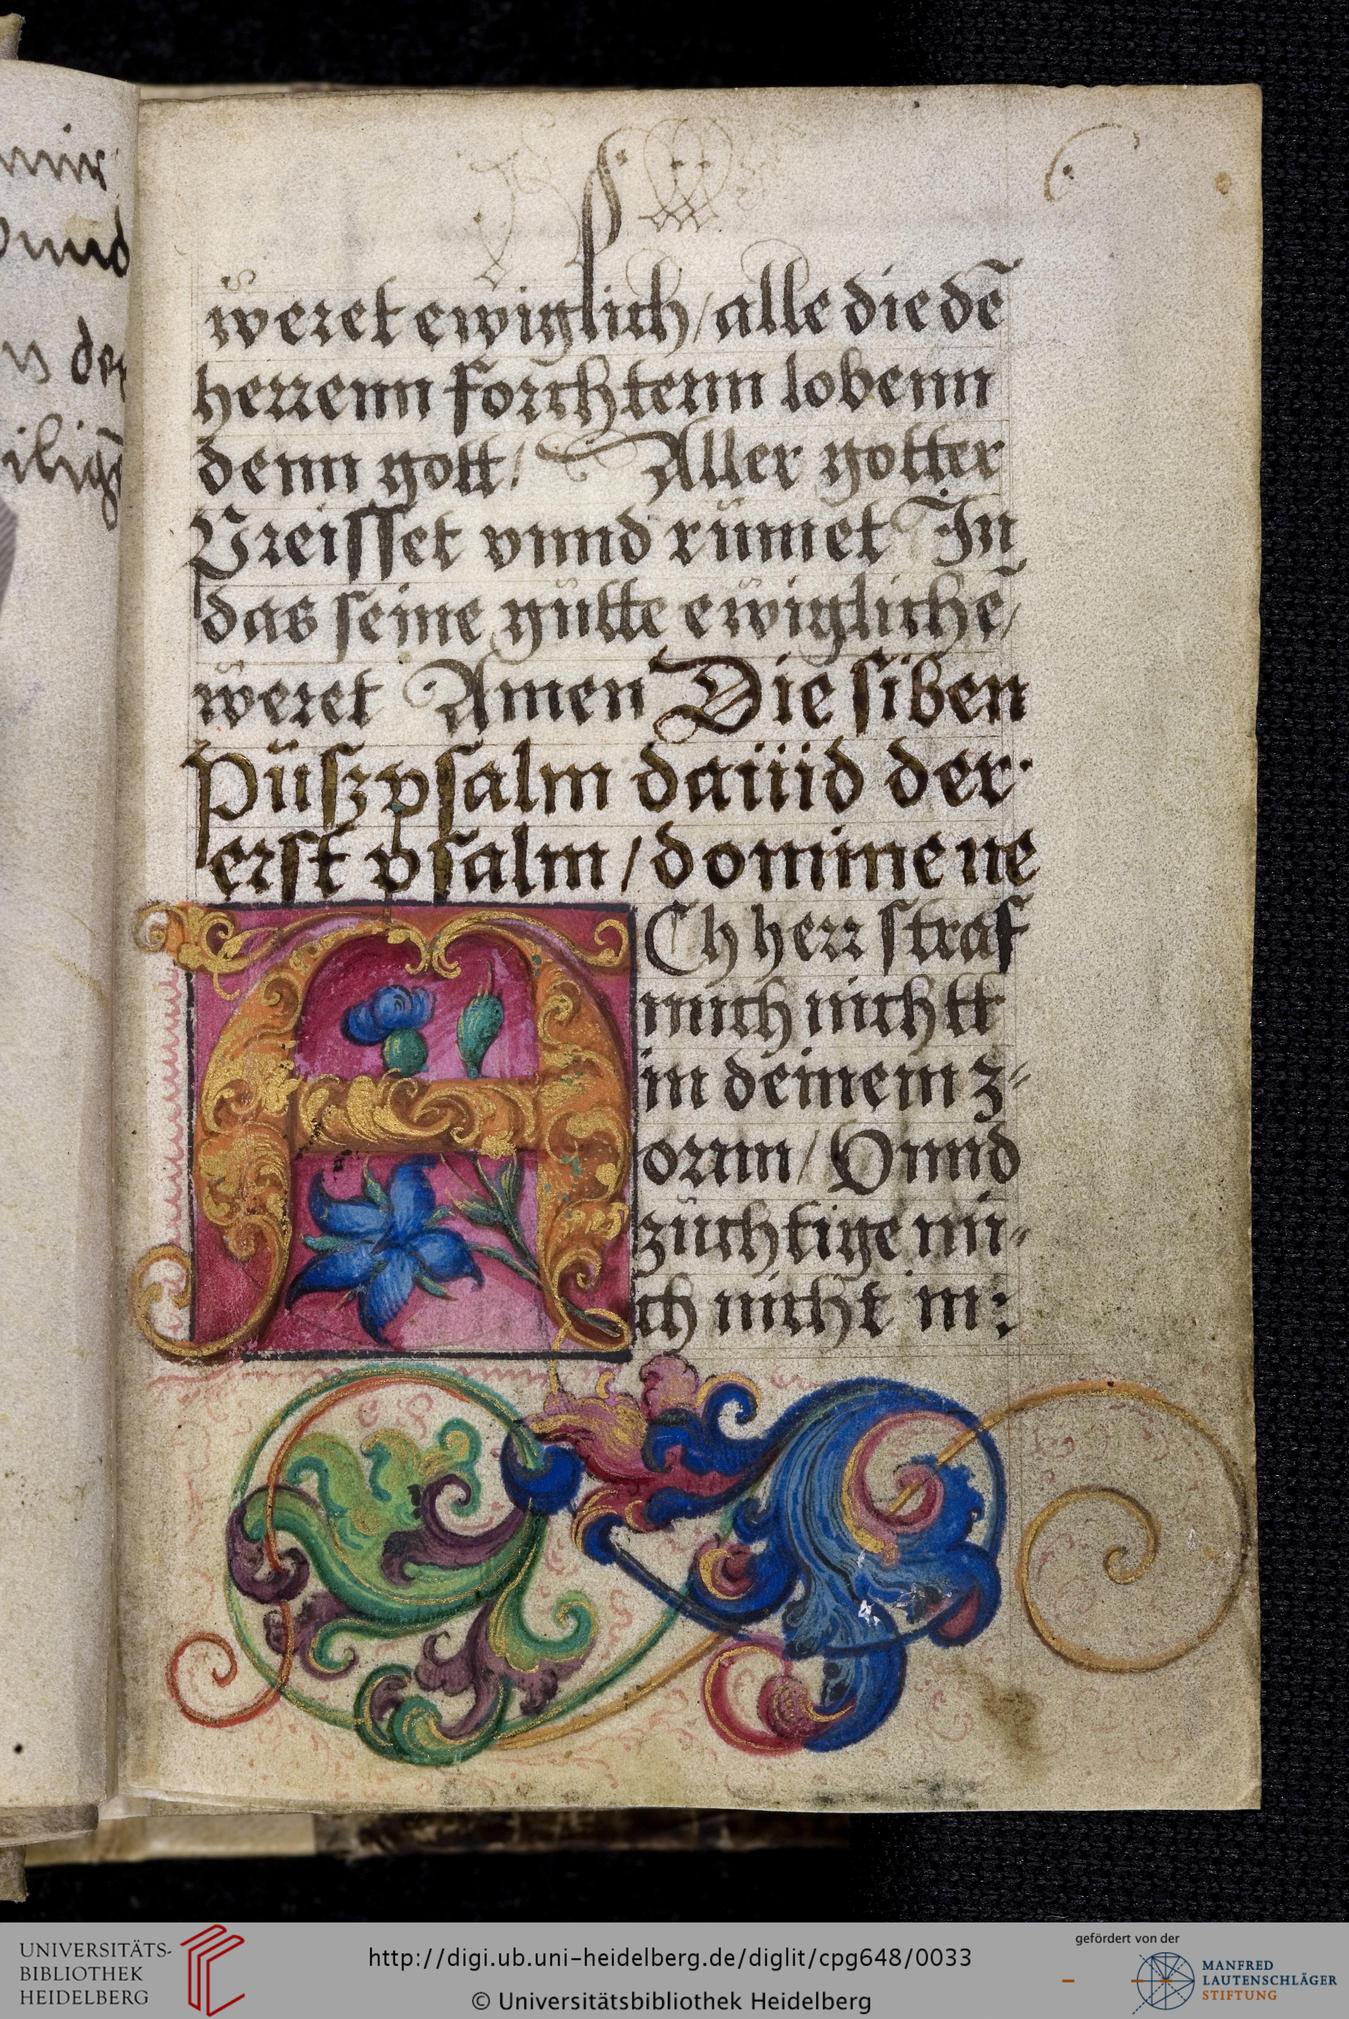 mir
vnnd
n der
iligē
weret ewiglich / alle die dē
herrenn forchtenn lobenn
denn gott / Aller gotter
Preisset vnnd rümet In
das seine gütte ewiglichē /
weret Amen Die siben
Püsz psalm dauid der
erst psalm / domine ne
ACh herr straf
mich nichtt
in deinem z-
ornn / Vnnd
züchtige mi-
ch nicht in :
UNIVERSITÄTS-
BIBLIOTHEK
HEIDELBERG
http://digi.ub.uni-heidelberg.de/diglit/cpg648/0033
© Universitätsbibliothek Heidelberg
gefördert von der
MANFRED
LAUTENSCHLÄGER
STIFTUNG